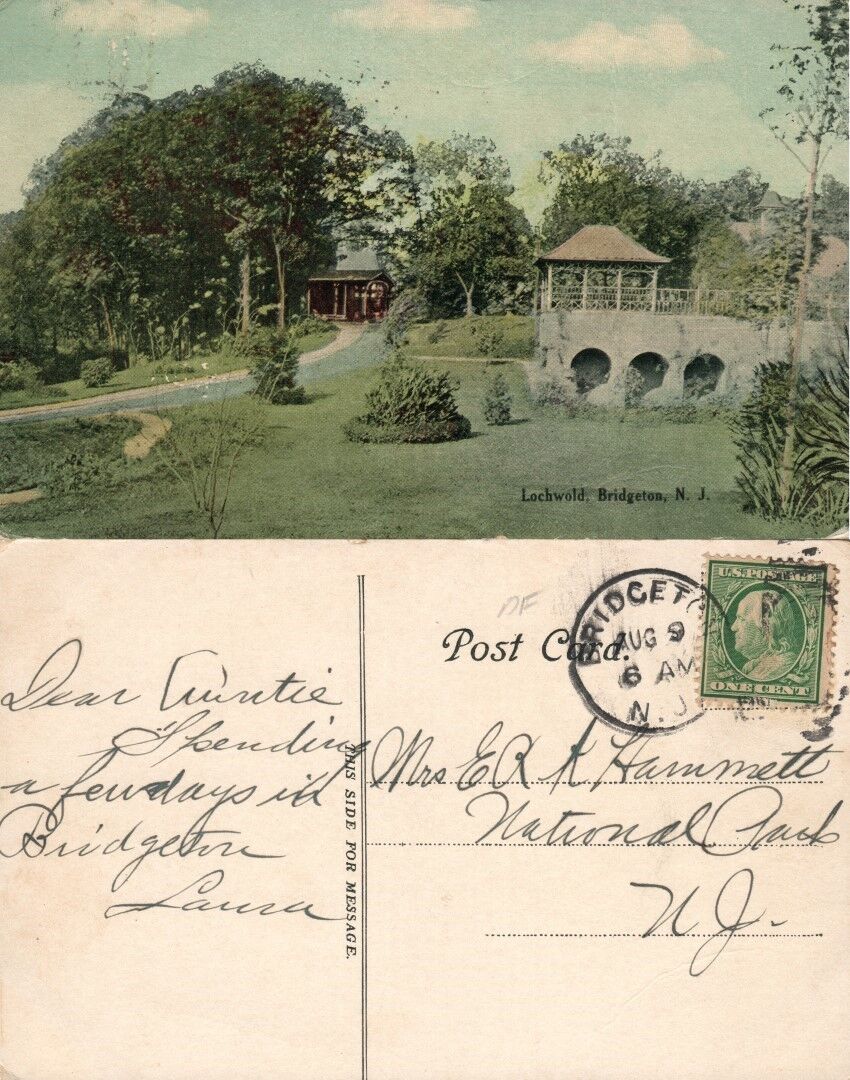 Lochwold, Bridgeton, N. J.
DF
Post Card.
BRIDGETON
AUG 9
6 AM
N. J.
U.S. POSTAGE
ONE CENT
Dear Auntie
Spending
a few days in
Bridgeton
Laura
THIS SIDE FOR MESSAGE.
Mrs E R K Hammett
National Park
N J.